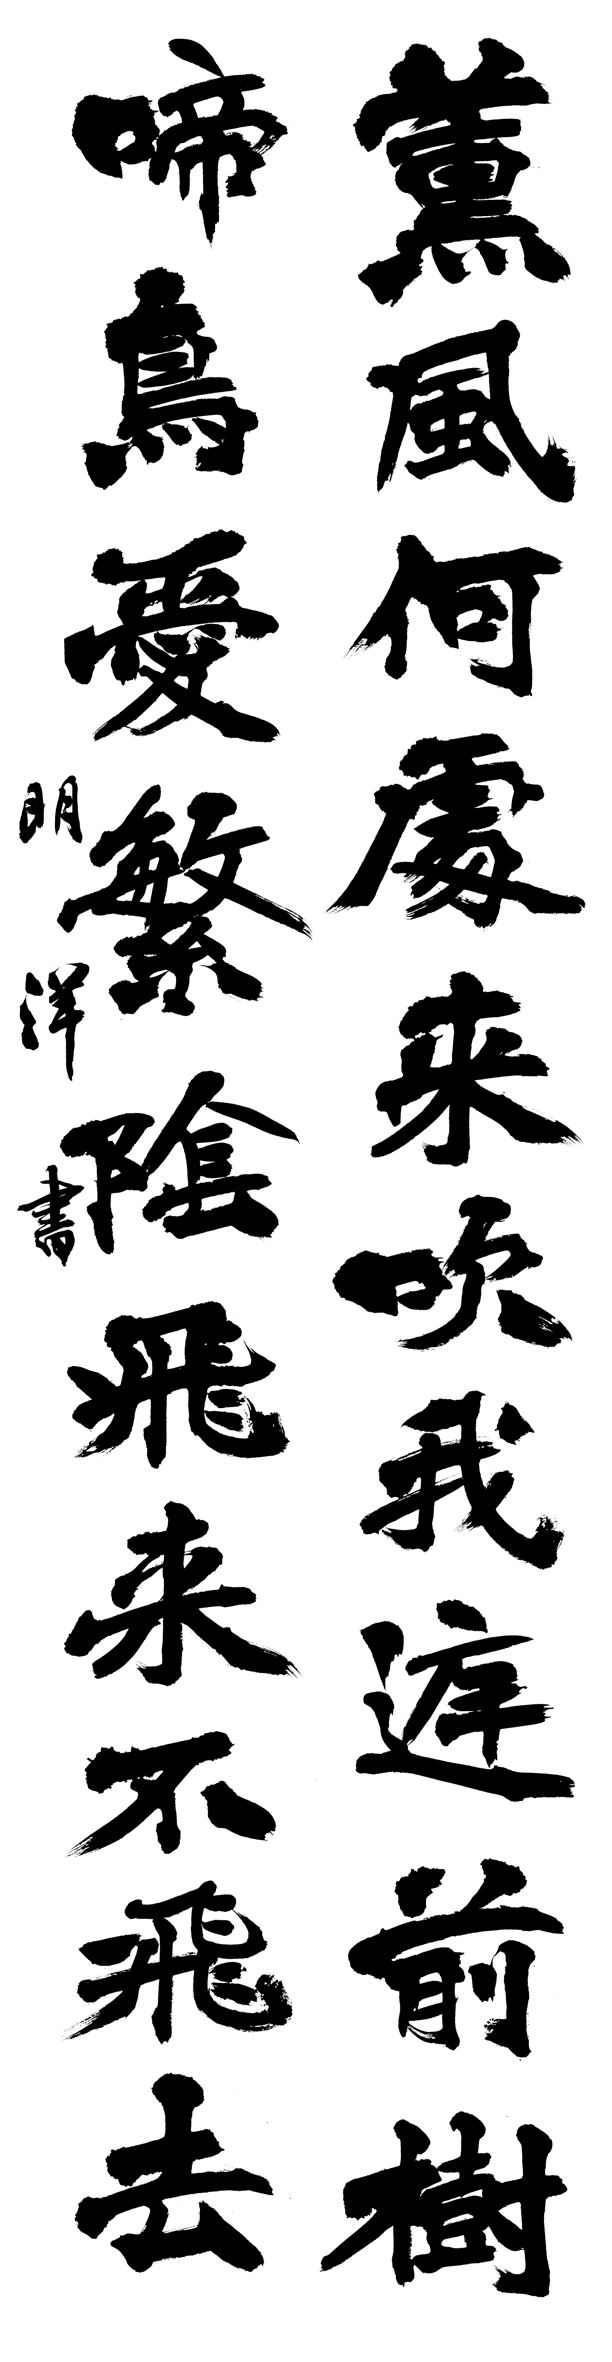 薫風何處来吹我庭前樹
啼鳥愛繁陰飛来不飛去
明洋書